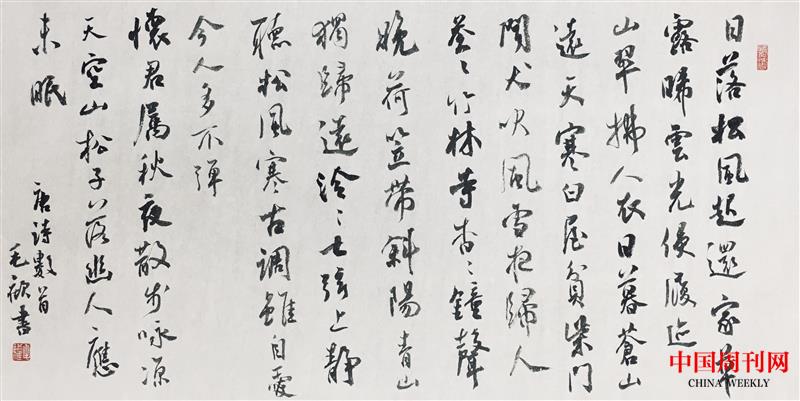 日落松風起還家草
露晞雲光侵履迹
山翠拂人衣日暮蒼山
遠天寒白屋貧柴門
聞犬吠風雪夜歸人
蒼〻竹林寺杳〻鐘聲
晚荷笠帶斜陽青山
獨歸遠泠〻七弦上靜
聽松風寒古調雖自愛
今人多不彈
懷君屬秋夜散步詠涼
天空山松子落幽人應
未眠
唐詩數首
毛書
中国周刊网
CHINA WEEKLY